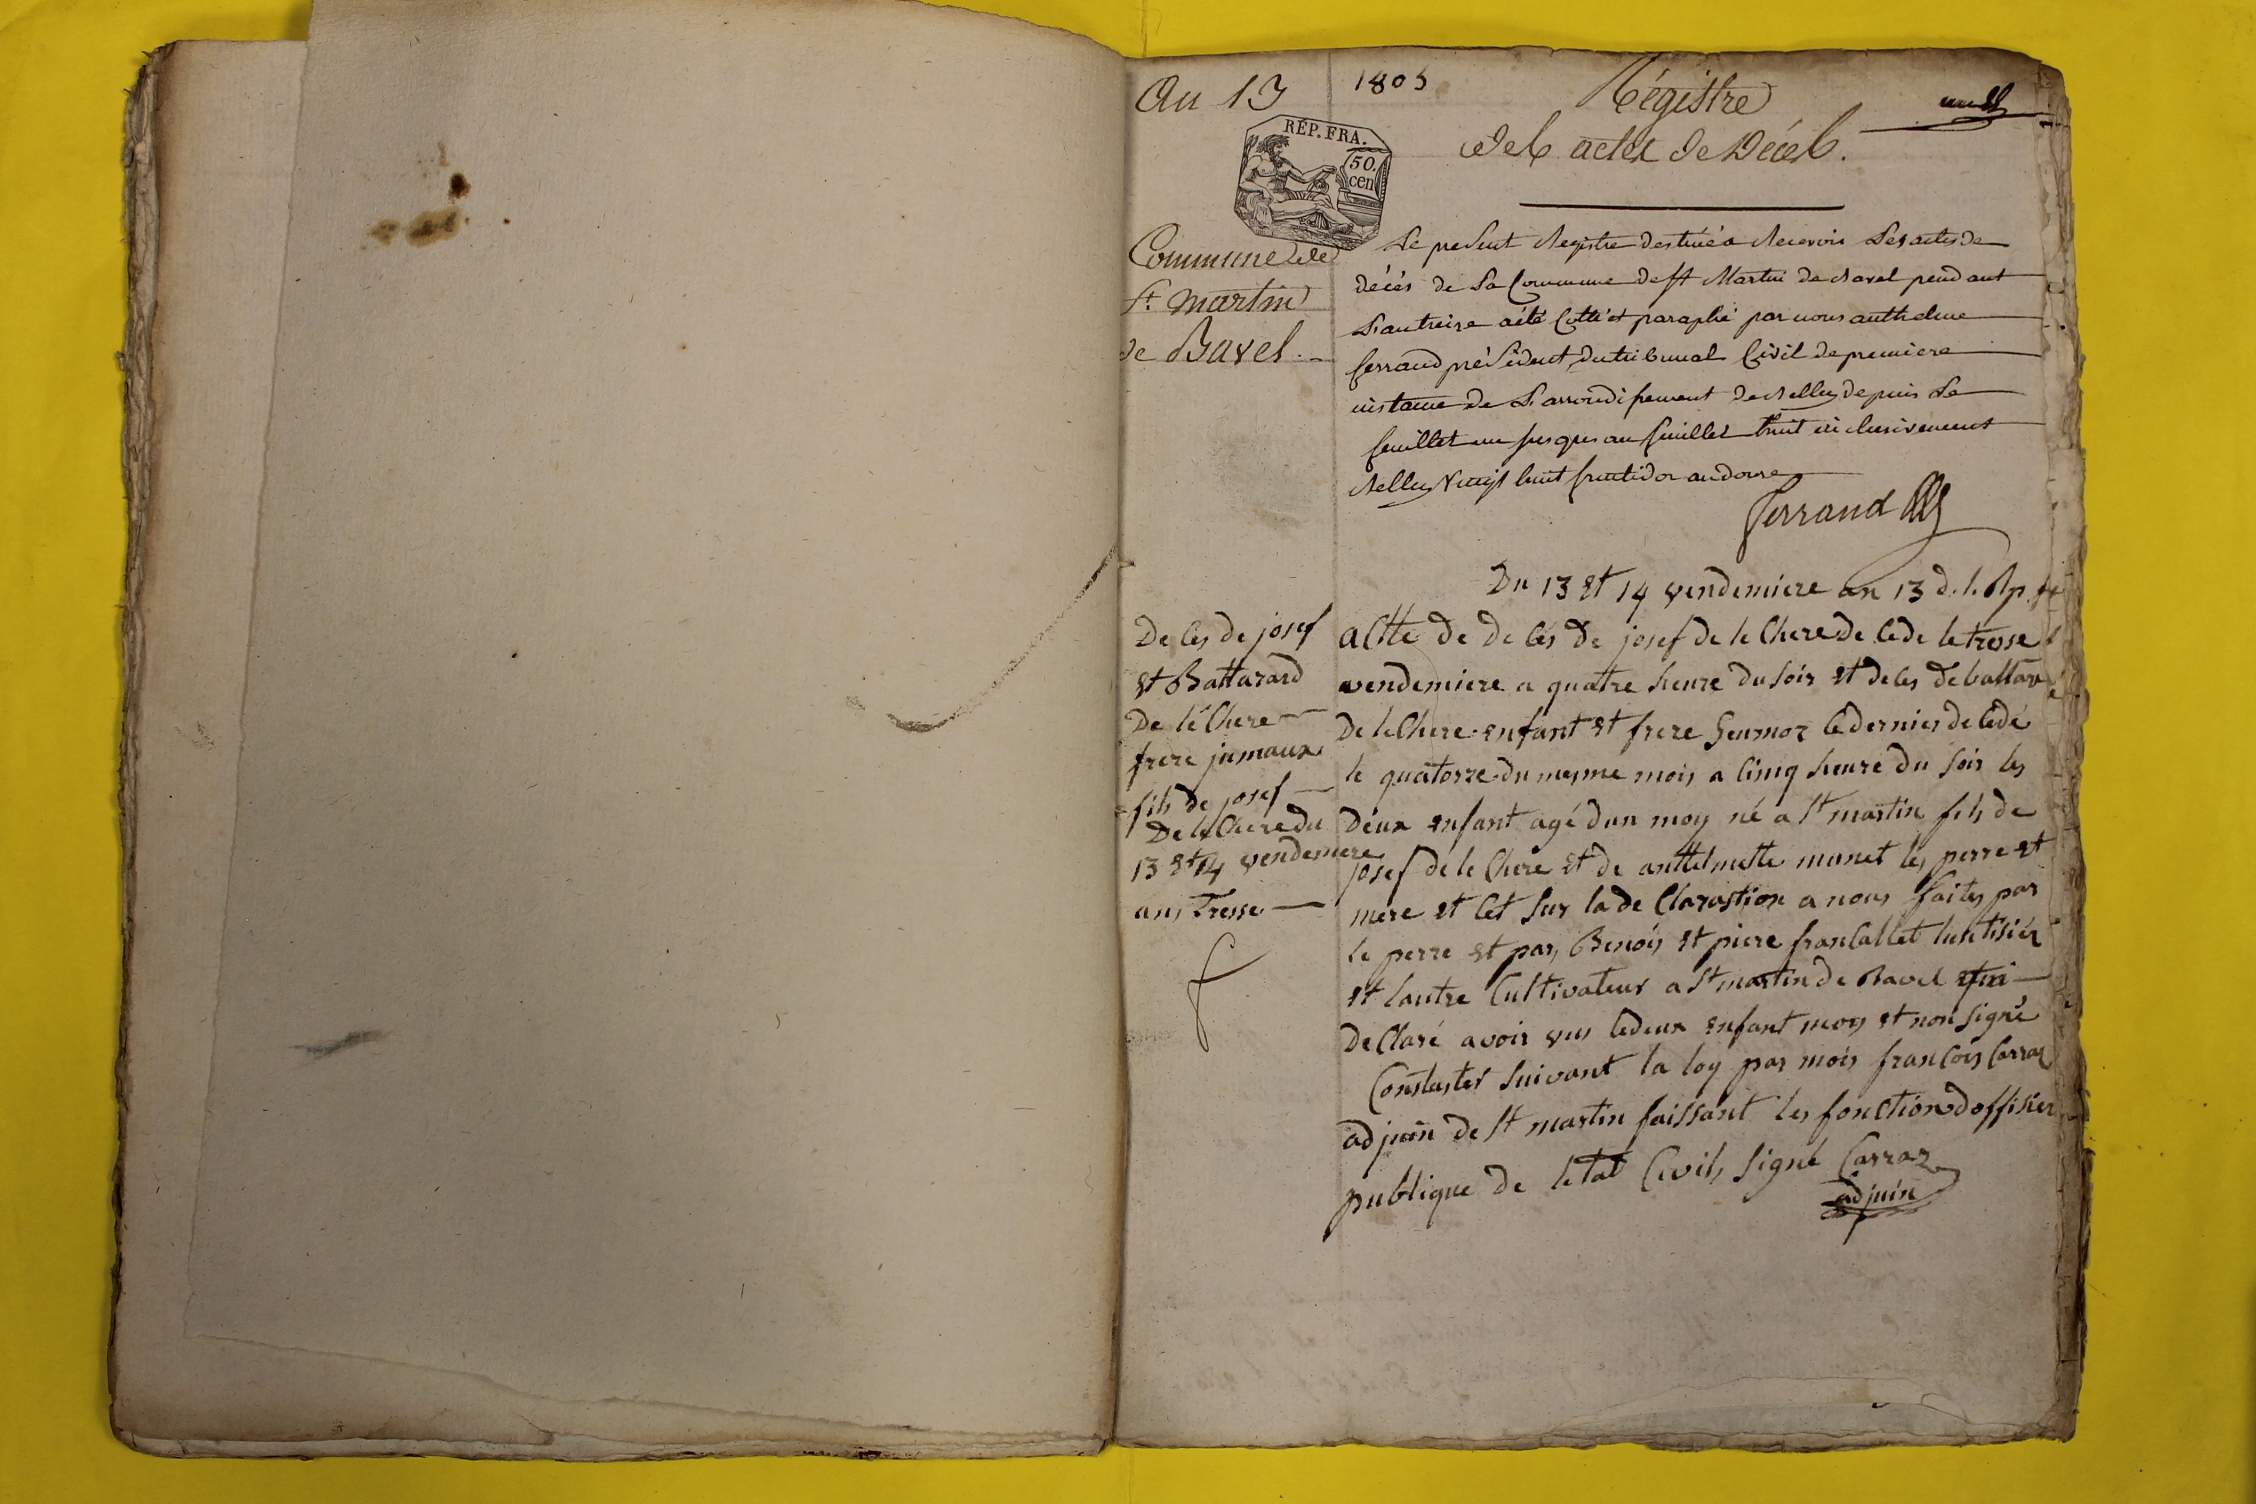 An 13
1805
Régistre
des actes de Décès.
RÉP. FRA.
50.
cen
Commune de
St. martin
de Bavel.
Le present Registre destiné a Recevoir Les actes de
décés de La Commune de st Martin de Bavel pendant
L'an treize a été Cotté et paraphé par nous anthelme
ferrand président du tribunal Civil de premiere
instance de L'arrondissement de Belley depuis Le
feuillet un jusques au feuillet huit inclusivement
Belley Vingt huit fructidor an douze
ferrand
Du 13 et 14 vendemiere an 13 d. l. Rp. fr
De Cés de josef
et Battarard
De lé Chere
frere jumaux
fils de josef
De le Chere du
13 et 14 vendemiere
ans Tresse
aCtte de de Cés de josef de le Chere de Cede le tresse
vendemiere a quatre heure du soir et de Ces de battar
de le Chere enfant et frere Ce dernier de Cedé
le quatorze du mesme mois a Cinq heure du soir les
deux enfant agé dun moy né a st martin fils de
josef de le Chere et de anttelmette munet les perre et
mere et Cet sur la de Clarastion a nous faites par
le perre et par Benois et piere franCallet
et lautre Cultivateur a st martin de Bavel
de Claré avoir vus Ce deux enfant mors et non signé
Constaster suivant la loy par mois franCois Carraz
adjuin de st martin faissant les fonction doffisier
publique de letat Civils signé Carraz
adjuin